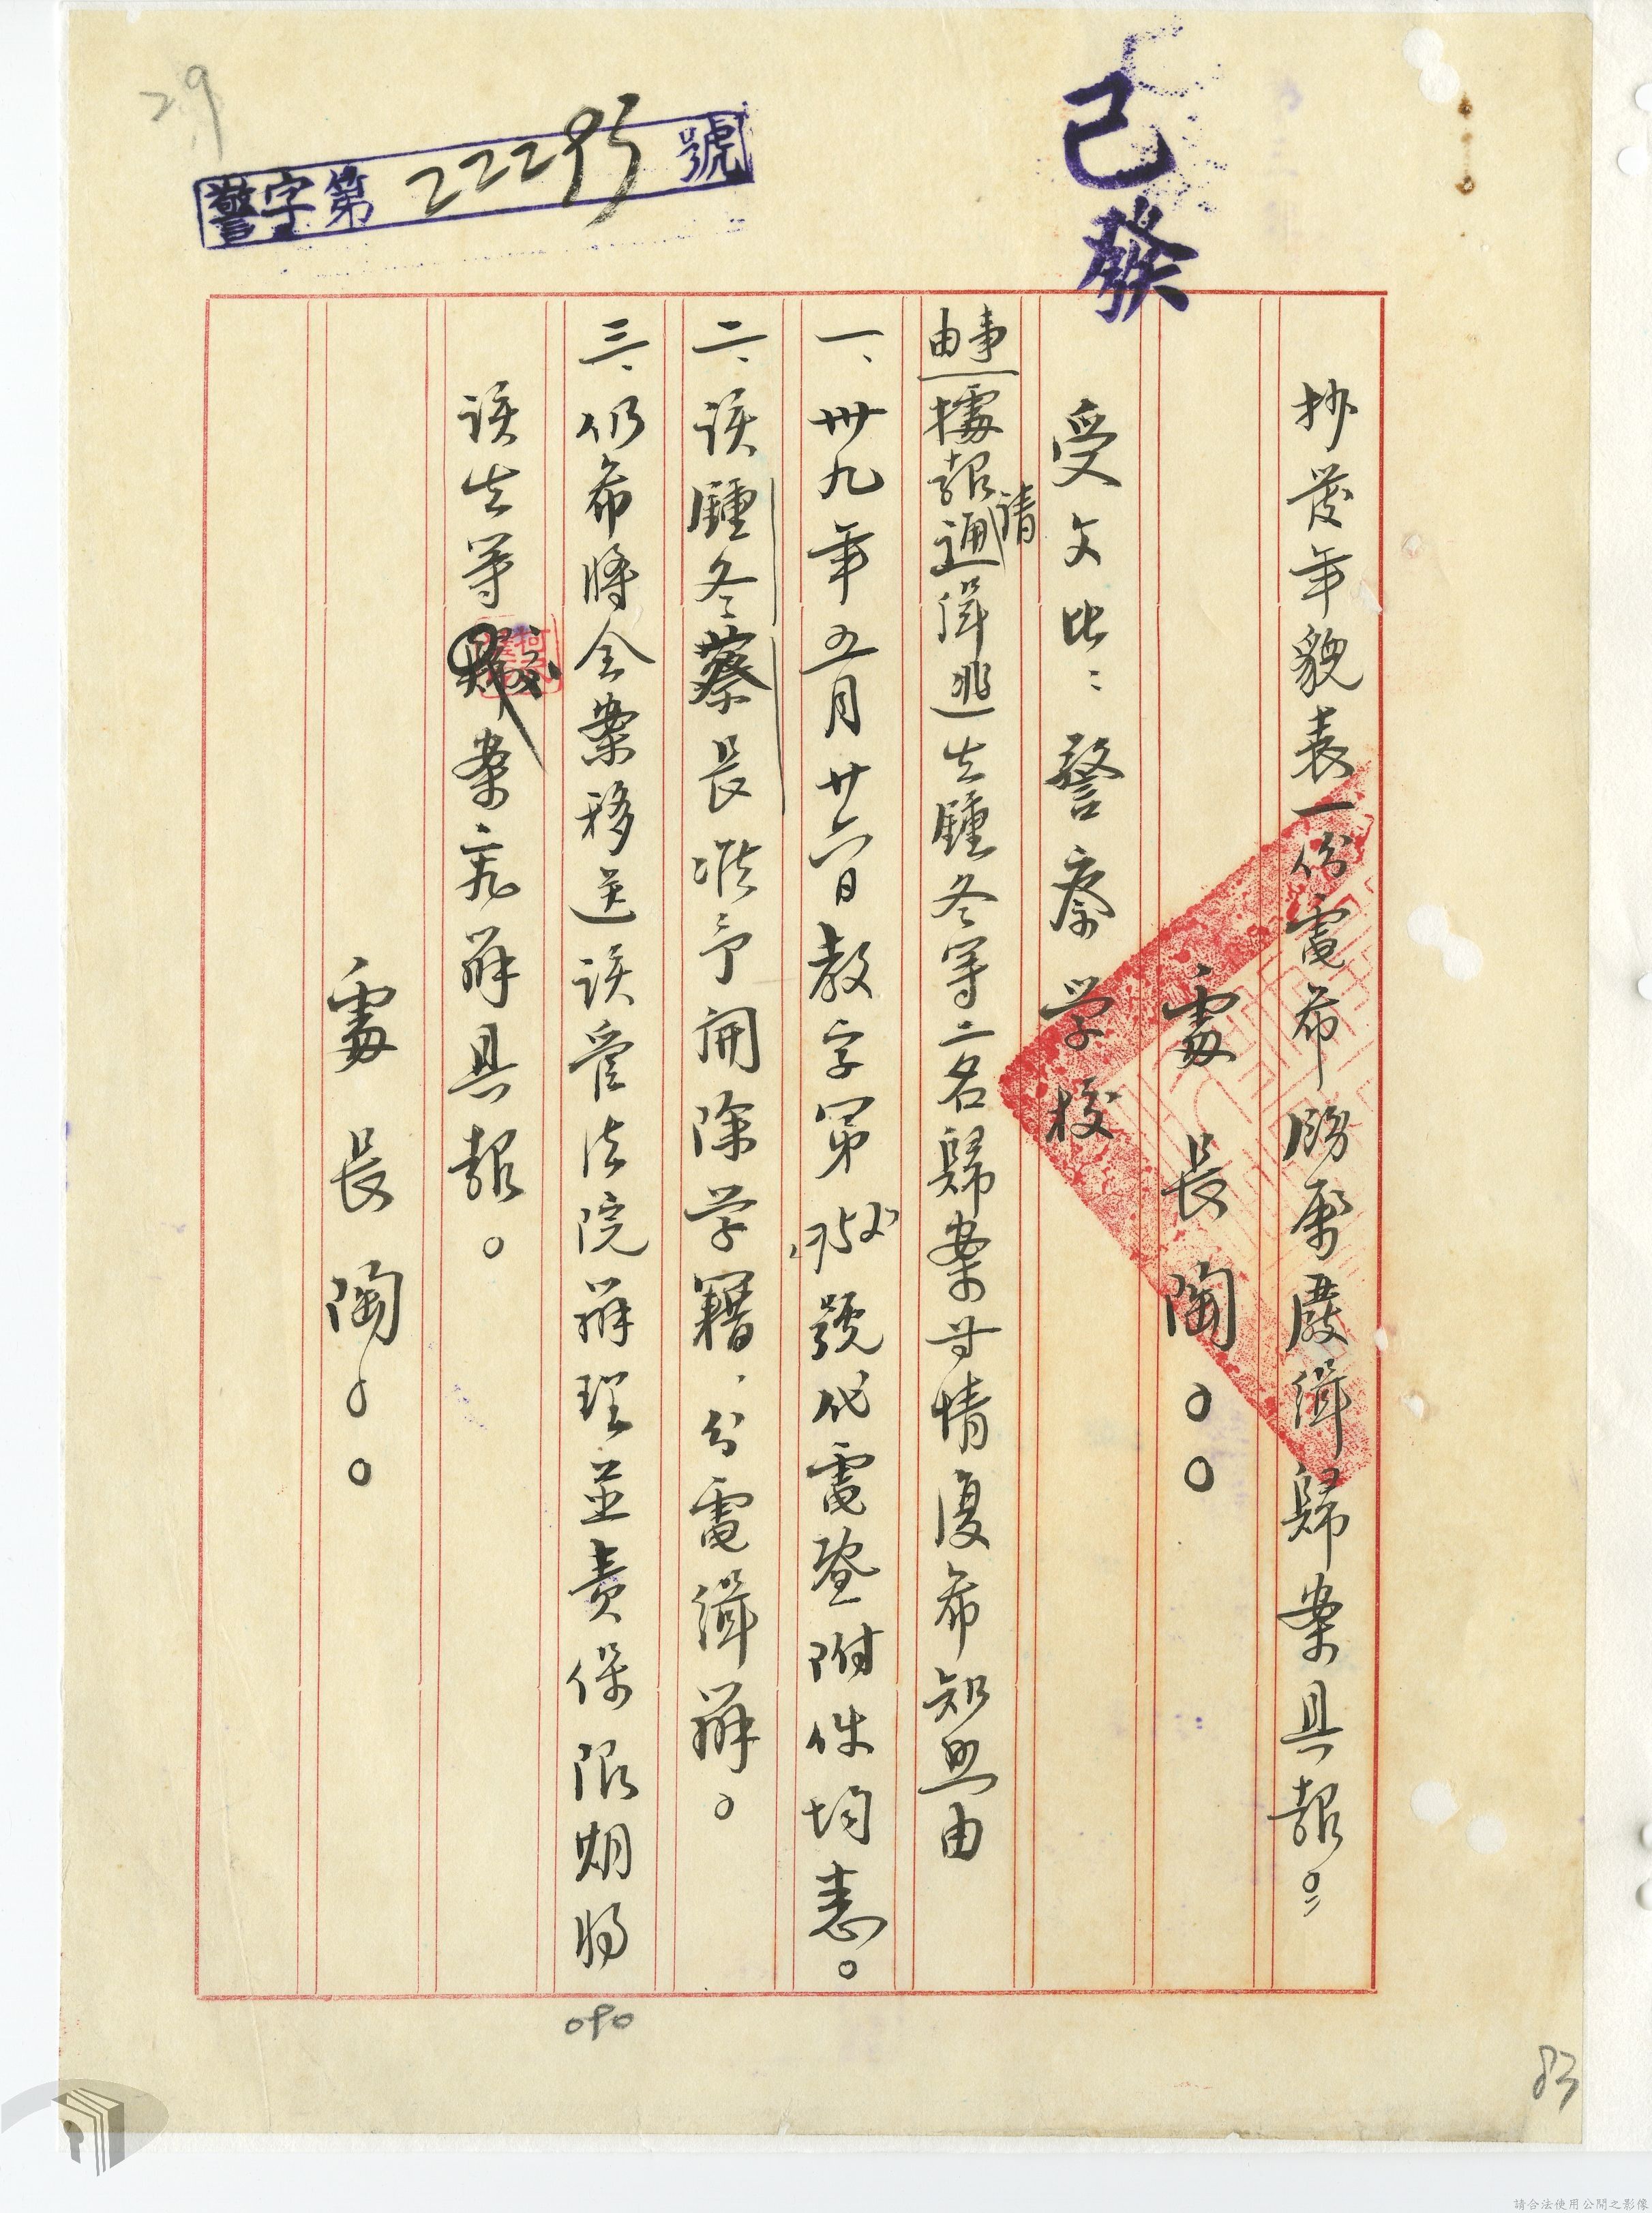 29
警字第22295號
已發
抄發年貌表一份電希勝屬嚴緝歸案具報。
處長陶。。
受文者：警察学校
事由 據報請通緝逃生鍾冬等二名歸案等情復希知照由
一、卅九年五月廿六日教字第號代電暨附件均悉。
二、該鍾冬蔡長准予開除学籍，分電緝辦。
三、仍希將全案移送該管法院辦理並責保限期將
該生等案交辦具報。
處長陶。。
090
83
請合法使用公開之影像